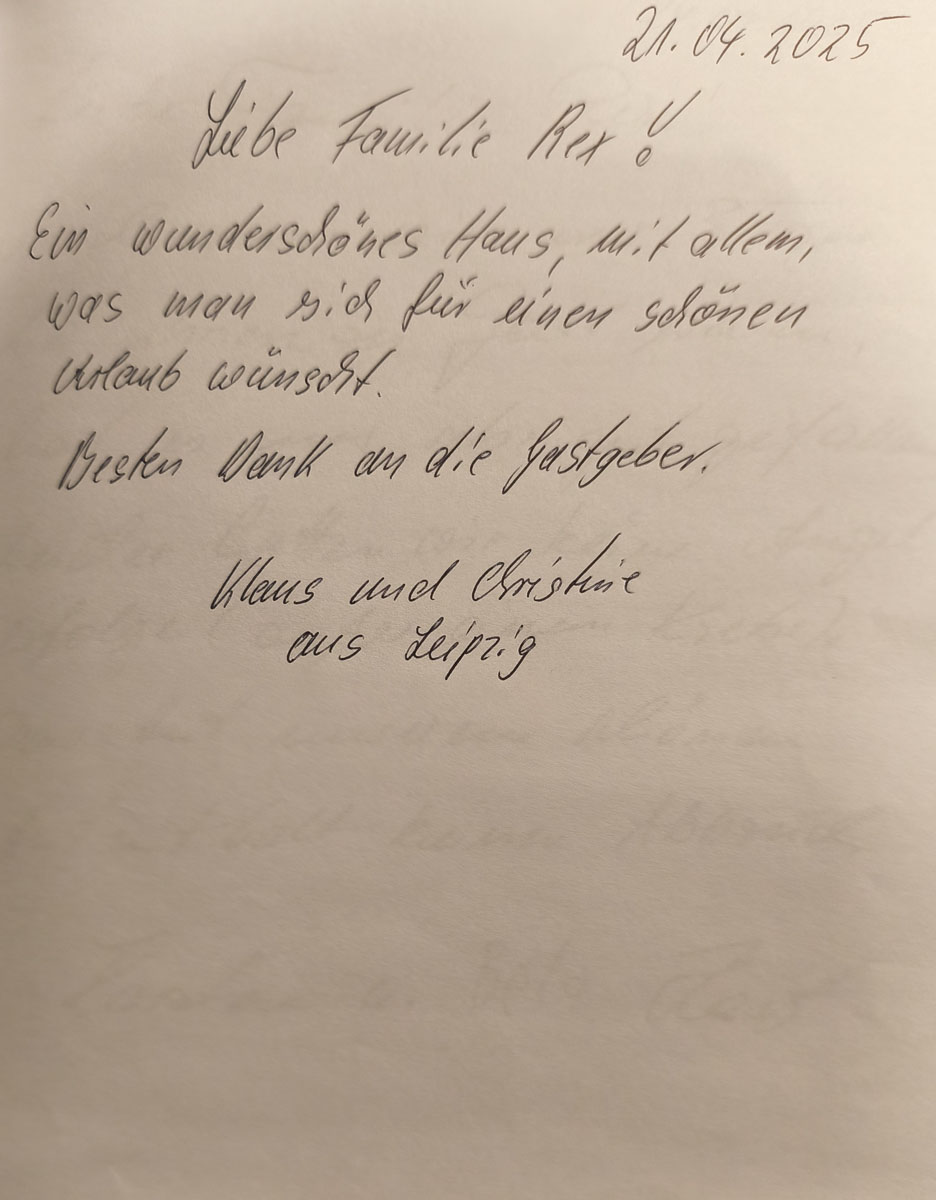 21.04.2025
Liebe Familie Rex!
Ein wunderschönes Haus, mit allem,
was man sich für einen schönen
Urlaub wünscht.
Besten Dank an die Gastgeber.
Klaus und Christine
aus Leipzig